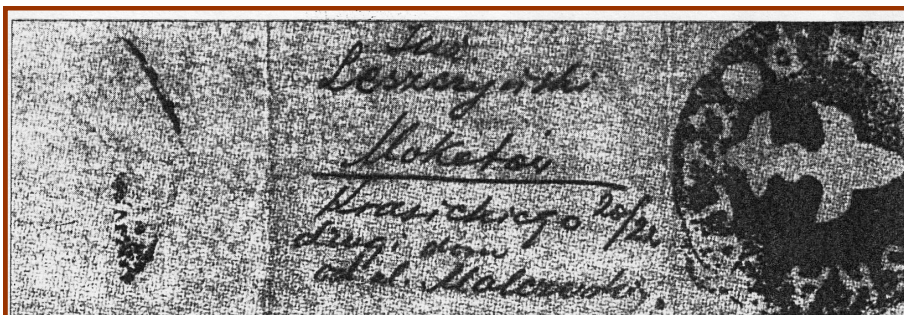 Leszczyński
Mokotów
Krasickiego 20/22
drugi dom
od ul. Malczewskiego